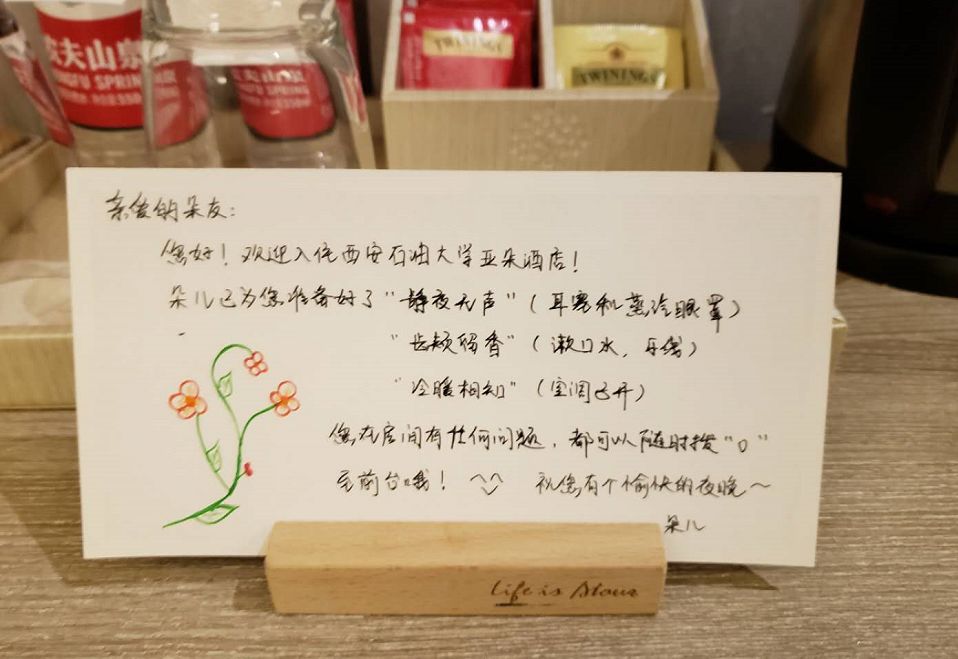 农夫山泉
NGFU SPRING
TWININGS
TWININGS
亲爱的朵友:
您好! 欢迎入住西安石油大学亚朵酒店!
朵儿已为您准备好了"静夜无声"(耳塞和蒸汽眼罩)
"齿颊留香"(漱口水, 牙线)
"冷暖相知"(空调已开)
您在房间有任何问题, 都可以随时拨"0"
至前台哦! ^_^ 祝您有个愉快的夜晚~
朵儿
Life is Atour